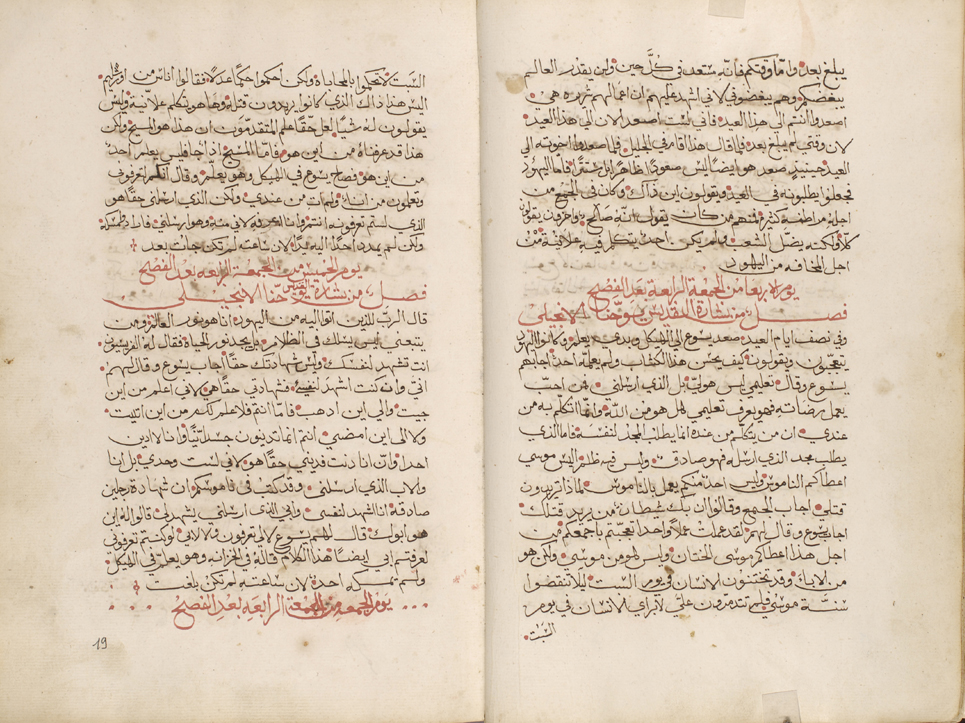 يبلغ بعد واما وقتكم فانه مستعد في كل حين ولن يقدر العالم
يبغضكم وهم يبغضوني لاني اشهد عليهم ان اعمالهم شريره هي
اصعدوا انتم الى هذا العيد فاني لست اصعد الان الى هذا العيد
لان وقتي لم يبلغ بعد فلما قال هذا اقام في الجليل فلما صعدوا اخوته الى
العيد حينيذ صعد هو ايضا ليس صعودا ظاهرا بل مستترا فاما اليهود
فجعلوا يطلبونه في العيد ويقولون اين ذاك وكان في الجمع من
اجله مراطنة كثيرة فمنهم من كان يقول انه صالح واخرون يقولون
كلا ولكنه يضل الشعب ولم يكن احد يتكلم فيه علانية من
اجل المخافه من اليهود
يوم الاربعا من الجمعة الرابعة بعد الفصح
فصل من بشارة القديس يوحنا الانجيلي
وفي نصف ايام العيد صعد يسوع الى الهيكل وبدى يعلم وكانوا اليهود
يتعجبون ويقولون كيف يحسن هذا الكتاب ولم يعلمه احد اجابهم
يسوع وقال تعليمي ليس هو لي بل الذي ارسلني من احب
يعمل رضاته فهو يعرف تعليمي هل هو من الله وانما اتكلم به من
عندي ان من يتكلم من عنده انما يطلب المجد لنفسه فاما الذي
يطلب مجد الذي ارسله فهو صادق وليس فيه ظلم اليس موسي
اعطاكم الناموس وليس احد منكم يعمل بالناموس لماذا تريدون
قتلي اجاب الجمع وقالوا ان بك شيطان من يريد قتلك
اجاب يسوع وقال لهم لقد عملت عملا واحدا فعجبتم باجمعكم من
اجل هذا اعطاكم موسى الختان وليس هو من موسي ولكن هو
من الاباء وقد تختنون الانسان في يوم السبت ليلا تنقضوا
سنة موسي فلم تتذمرون علي لابراي الانسان في يوم
السبت
السبت لا تحكموا بالمحاباة ولكن احكموا حكما عدلا فقالوا اناس من اورشليم
اليس هذا ذاك الذي كانوا يريدون قتله وها هو يتكلم علانية وليس
يقولون له شيا لعل حقا علم المتقدمون ان هذا هو المسيح ولكن
هذا قد عرفناه من اين هو فاما المسيح اذا جا فليس يعلم احد
من اين هو فصاح يسوع في الهيكل وهو يعلم وقال انكم تعرفوني
وتعلمون من اين انا ولم ات من عندي ولكن الذي ارسلني حقا هو
الذي لستم تعرفونه انتم وانا اعرفه لاني منه وهو ارسلني فارادوا مسكه
ولكن لم يمدد احد اليه يدا لان ساعته لم تكن جات بعد
يوم الخميس من الجمعة الرابعه بعد الفصح
فصل من بشارة القديس يوحنا الانجيلي
قال الرب للذين اتوا اليه من اليهود انا هو نور العالم ومن
يتبعني ليس يسلك في الظلام بل يجد نور الحياة فقال له الفريسيون
انت تشهد لنفسك وليس شهادتك حقا اجاب يسوع وقال لهم
اني وان كنت اشهد لنفسي فشهادتي حقا هي لاني اعلم من اين
جيت والى اين اذهب فاما انتم فلا علم لكم من اين اتيت
ولا الى اين امضي انتم انما تدينون جسدانيا وانا لا ادين
احدا وان انا دنت فديني حقا هو لاني لست وحدي بل انا
والاب الذي ارسلني وقد كتب في ناموسكم ان شهادة رجلين
صادقة انا اشهد لنفسي وابي الذي ارسلني يشهد لي قالوا له اين
هو ابوك قال لهم يسوع لا لي تعرفون ولا لابي لو كنتم تعرفوني
لعرفتم ابي ايضا هذا الكلام قاله في الخزانه وهو يعلم في الهيكل
ولم يمسكه احد لان ساعته لم تكن بلغت
يوم الجمعه من الجمعة الرابعه بعد الفصح
19